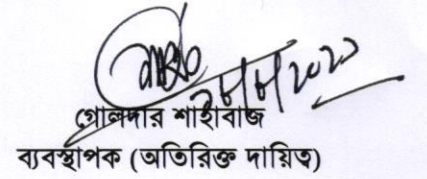 গোলদার শাহাবাজ
ব্যবস্থাপক (অতিরিক্ত দায়িত্ব)